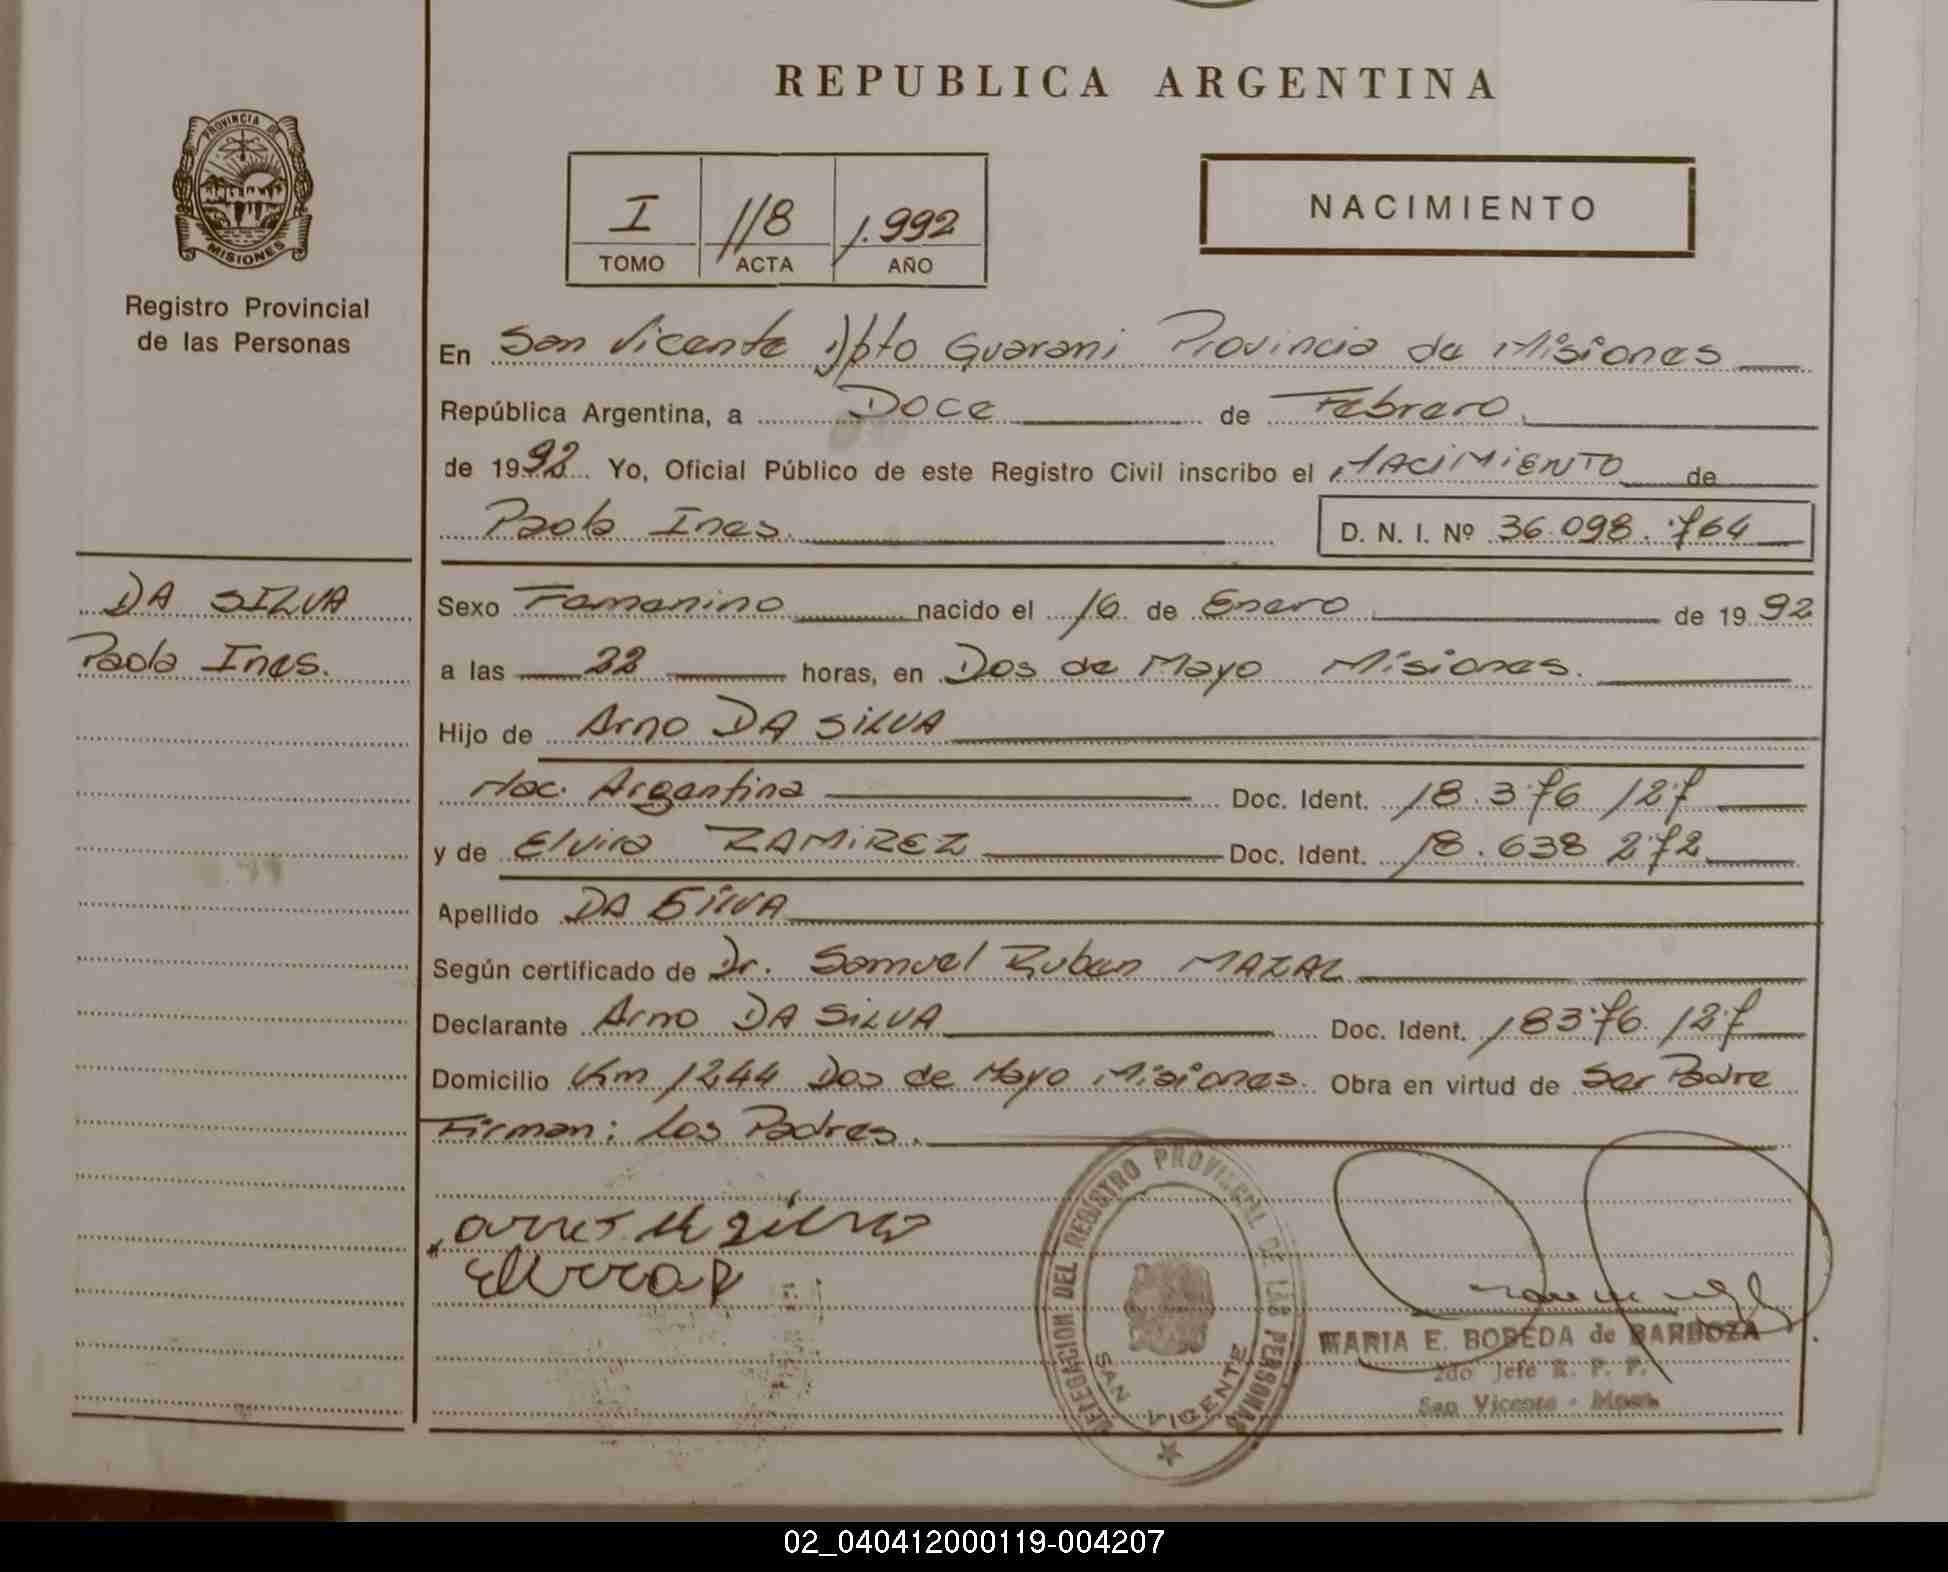 REPUBLICA ARGENTINA
PROVINCIA DE
MISIONES
Registro Provincial
de las Personas
I 118 1.992
TOMO ACTA AÑO
NACIMIENTO
En San Vicente Dpto Guarani Provincia de Misiones
República Argentina, a Doce de Febrero
de 1992 Yo, Oficial Público de este Registro Civil inscribo el NACIMIENTO de
Paola Ines. D. N. I. Nº 36.098.764
DA SILVA
Paola Ines.
Sexo Femenino nacido el 16 de Enero de 1992
a las 22 horas, en Dos de Mayo Misiones.
Hijo de Arno DA SILVA
Nac. Argentina Doc. Ident. 18.376 127
y de Elvira RAMIREZ Doc. Ident. 18.638 272
Apellido DA SILVA
Según certificado de Dr. Samuel Ruben MAZAL
Declarante Arno DA SILVA Doc. Ident. 18376.127
Domicilio Km 1244 Dos de Mayo Misiones. Obra en virtud de Ser Padre
Firman: Los Padres.
DELEGACION DEL REGISTRO PROVINCIAL DE LAS PERSONAS
SAN VICENTE
MARIA E. BOBEDA de BARBOZA
2do Jefe R. P. P.
San Vicente - Mnes.
02_040412000119-004207